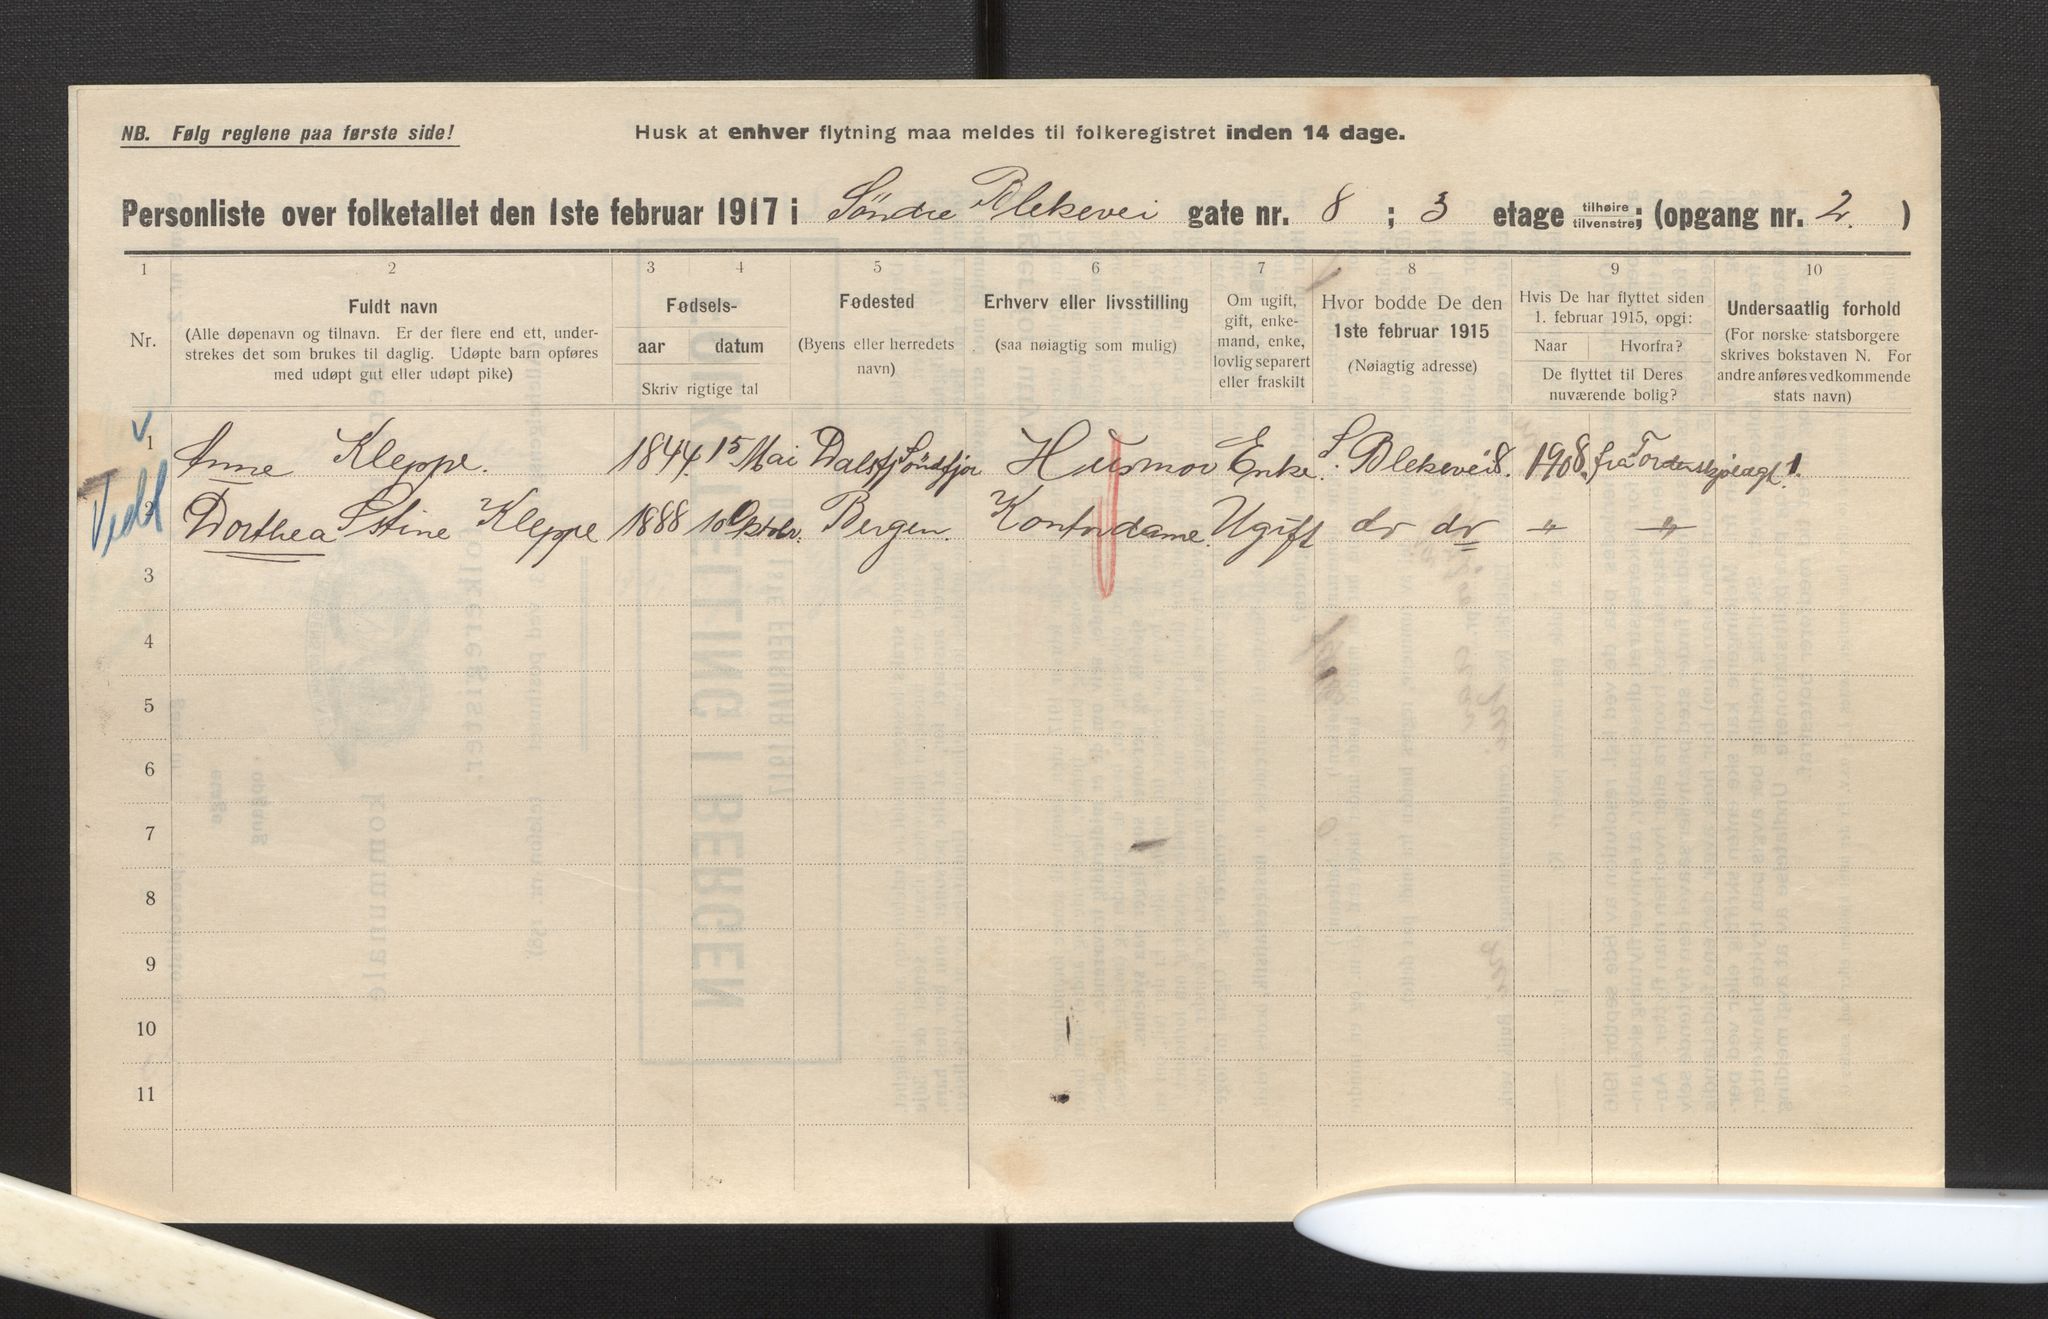 NB. Følg reglene paa første side!
Husk at enhver flytning maa meldes til folkeregistret inden 14 dage.
Personliste over folketallet den 1ste februar 1917 i Søndre Blekevei gate nr. 8 ; 3 etage tilhøire tilvenstre ; (opgang nr. 2. )
1 2 3 4 5 6 7 8 9 10
Nr.
Fuldt navn
(Alle døpenavn og tilnavn. Er der flere end ett, under-
strekes det som brukes til daglig. Udøpte barn opføres
med udøpt gut eller udøpt pike)
Fødsels-
aar datum
Skriv rigtige tal
Fødested
(Byens eller herredets
navn)
Erhverv eller livsstilling
(saa nøiagtig som mulig)
Om ugift,
gift, enke-
mand, enke,
lovlig separert
eller fraskilt
Hvor bodde De den
1ste februar 1915
(Nøiagtig adresse)
Hvis De har flyttet siden
1. februar 1915, opgi:
Naar Hvorfra?
De flyttet til Deres
nuværende bolig?
Undersaatlig forhold
(For norske statsborgere
skrives bokstaven N. For
andre anføres vedkommende
stats navn)
1 Anne Kleppe. 1844. 15 Mai Dalsfj Søndfjor Husmor Enke. S. Blekevei 8. 1908. fra
2 Dorthea Stine Kleppe 1888 10 Oktobr. Bergen. Kontordame. Ugift do do " "
3
4
5
6
7
8
9
10
11